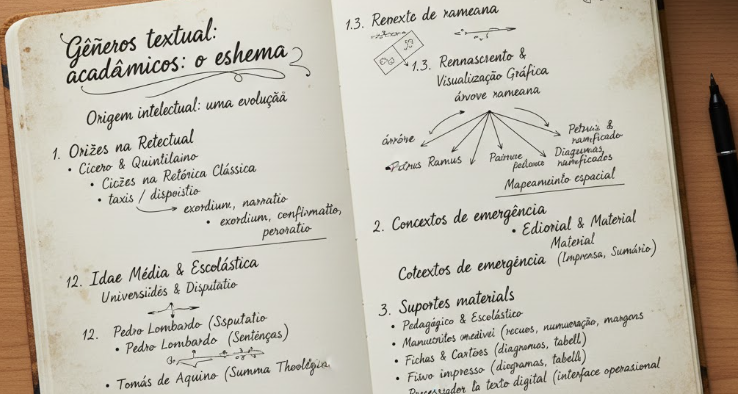 Gêñeros textual:
acadâmicos: o eshema
Origem intelectual: uma evoluçãã
1. Orižes na Retectual
• Cicero & Quintilaino
• Cicžes na Retórica Clássica
• taxis / dispoistio
exordium, narratio
• exordium, confirmatio,
peroratio
12. Idae Média & Escolástica
Universiidés & Disputátio
12. Pedro Lombardo (Ssputatio
• Pedro Lombardo (Sentenças)
• Tomás de Aquino (Summa Theológia
1.3. Renexte de rameana
1.3. Rennascriento &
Visualização Gráfica
árvove rameana
árróre
Petrus Ramus
Petruis &
ramificado
Diagramas,
ramificados
Mapeameinto espacial
2. Concextos de emergência
• Ediorial & Material
Material
Coteextos de emergência (Imprensa, Sumário)
3. Suportes materials
• Pedagágico & Escolástico
• Manuscritos medivei (recuos, numuração, margons
• Fichas & Cartões (diagramas, tabell)
• Fiivo impresso (diegramas, tabell)
Processador la texto digital (interface operasional